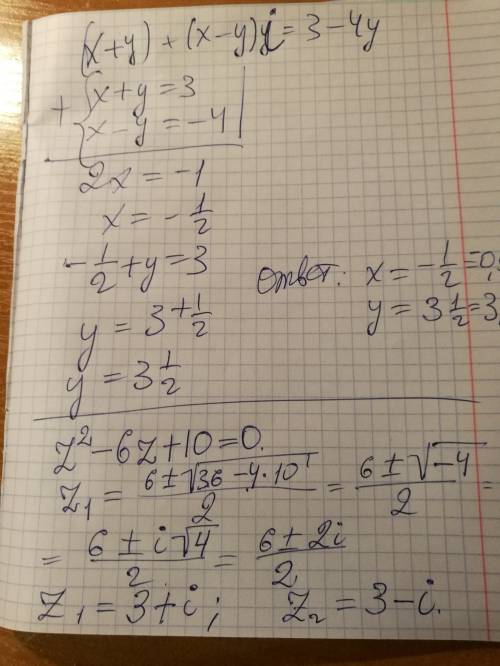 (x+y) + (x-y)i = 3 - 4y
+ { x+y = 3
x-y = -4 |
2x = -1
x = -1/2
-1/2 + y = 3
y = 3 + 1/2
y = 3 1/2
ответ: x = -1/2 = 0,
y = 3 1/2 = 3,
z² - 6z + 10 = 0.
z₁ = (6 ± √(36 - 4·10))/2 = (6 ± √-4)/2 =
= (6 ± i√4)/2 = (6 ± 2i)/2
z₁ = 3 + i; z₂ = 3 - i.